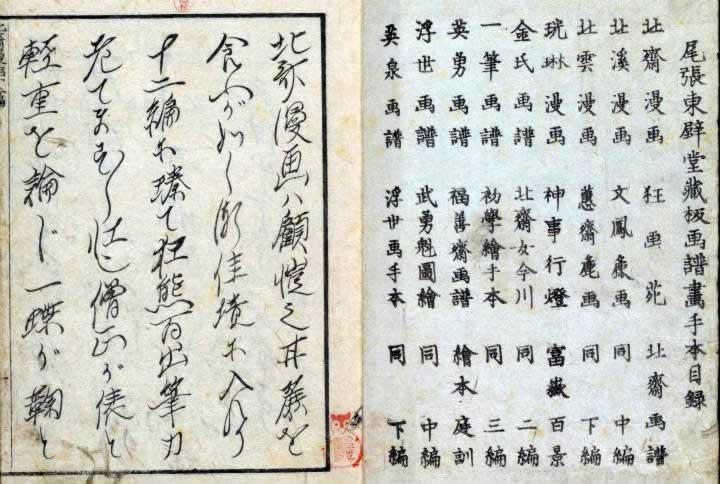 尾張東壁堂藏板画譜畫手本目録
北齋漫画 狂画苑 北齋画譜
北溪漫画 文鳳麁画 同 中編
北雲漫画 蕙齋麁画 同 下編
珖琳漫画 神事行燈 富嶽百景
金氏画譜 北齋女今川 同 二編
一筆画譜 初學繪手本 同 三編
英勇画譜 福善齋画譜 繪本庭訓
浮世画譜 武勇魁圖繪 同 中編
英泉画譜 浮世画手本 同 下編
北斎漫画ハ顧愷之甘簾を
含ふが如く漸佳境に入り
十二編に臻て狂態百出筆力
老てますます壮也僧正が俵に
軽重を論じ一蝶が鞠に